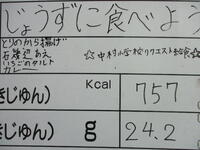 じょうずに食べよう
とりのから揚げ
石垣辺あえ
いちごのタルト
カレー
☆中村小学校リクエスト給食☆
Kcal
きじゅん)
757
きじゅん)
g
24.2